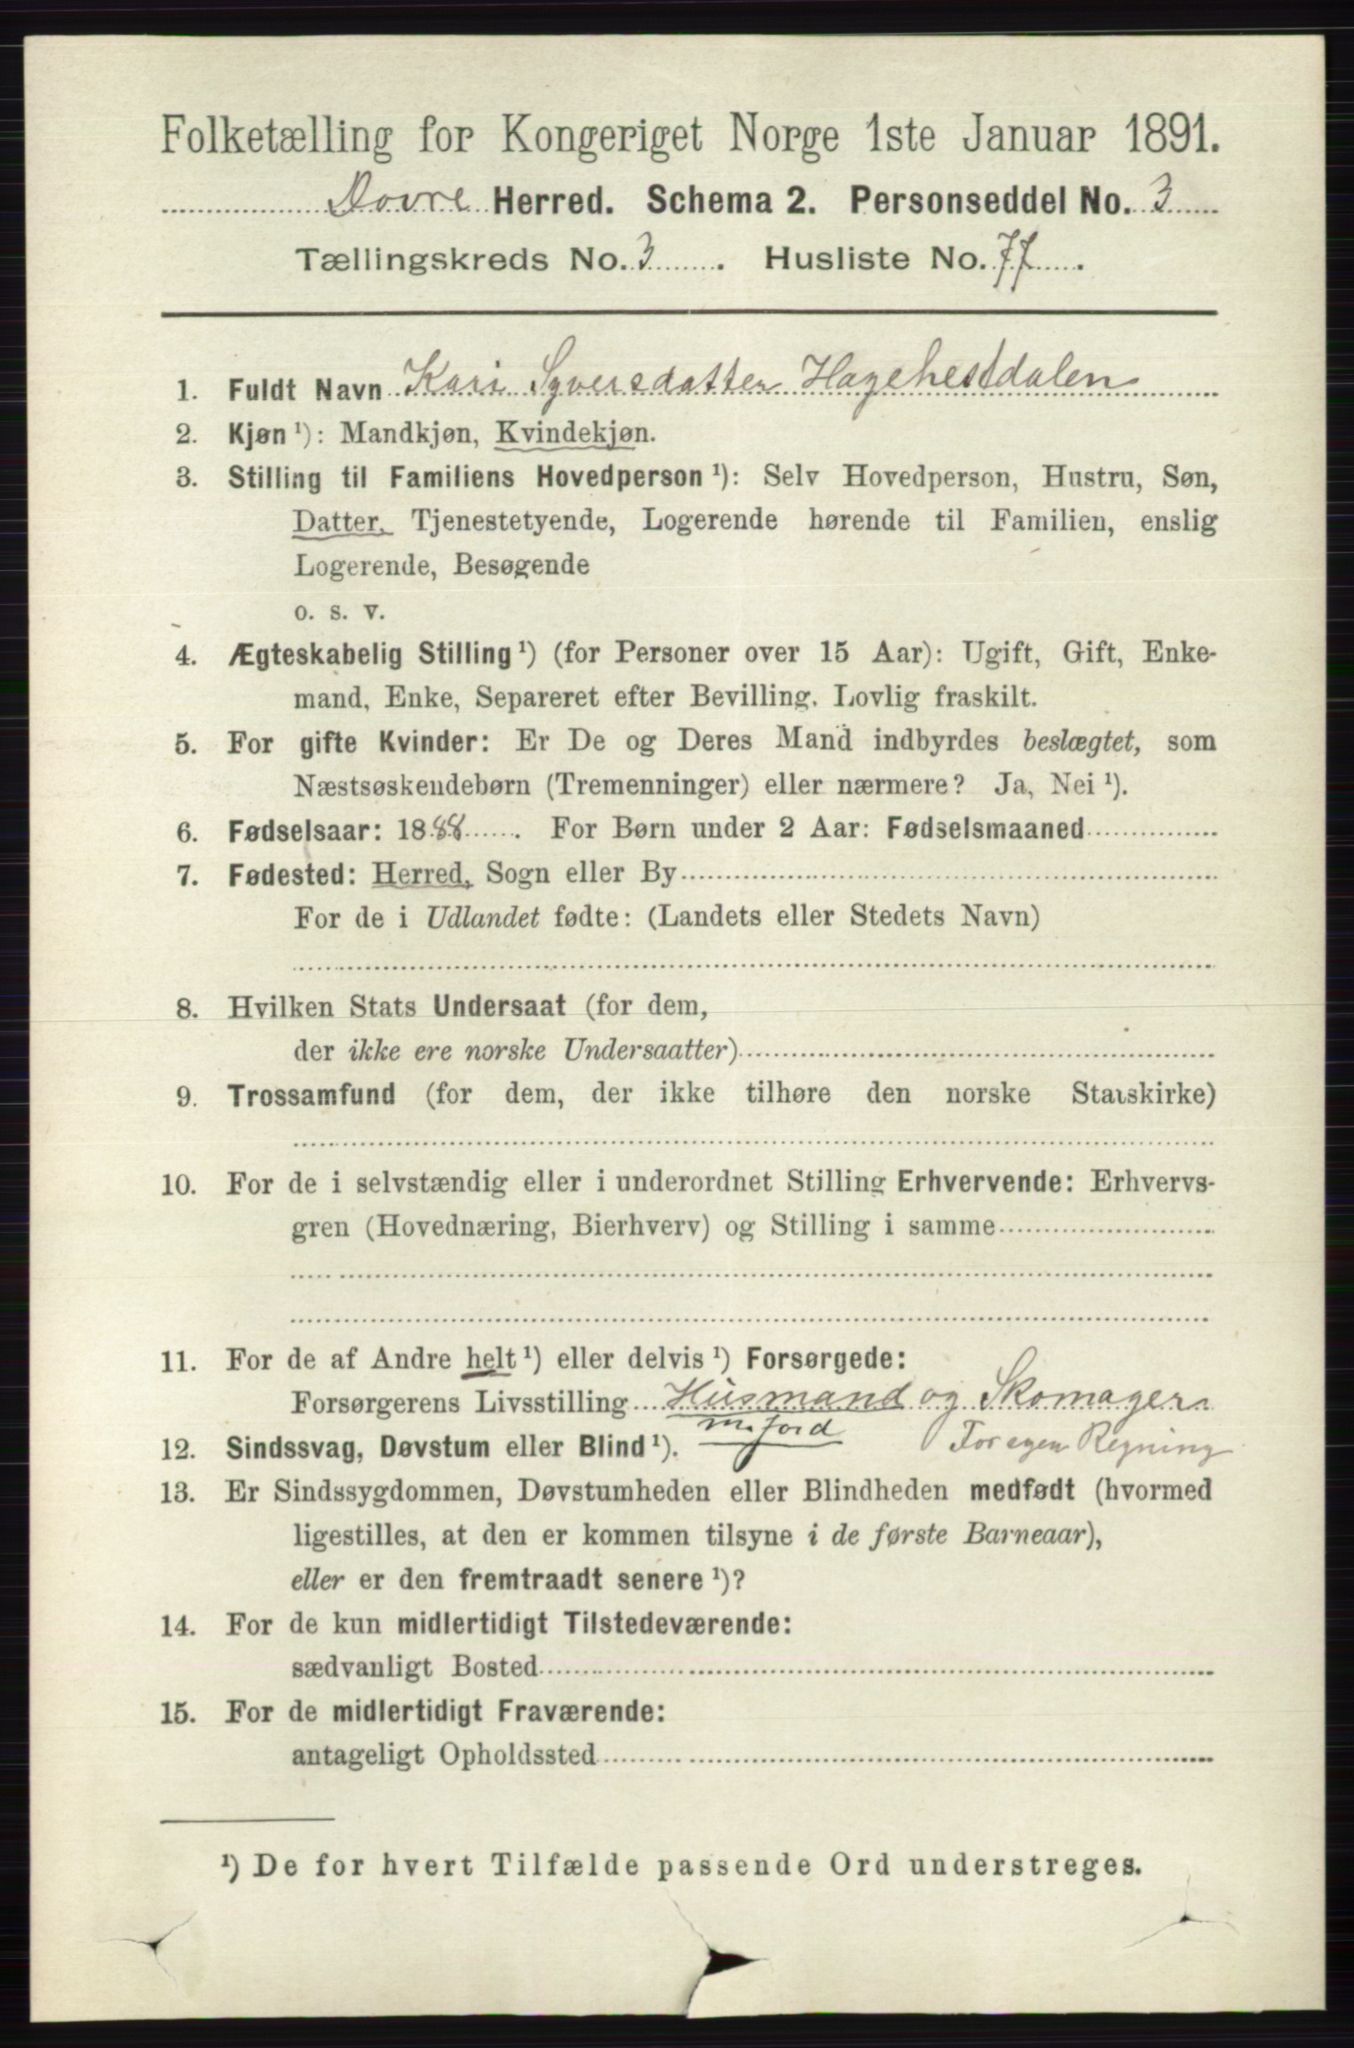 Folketælling for Kongeriget Norge 1ste Januar 1891.
Dovre Herred. Schema 2. Personseddel No. 3
Tællingskreds No. 3. Husliste No. 77.
1. Fuldt Navn Kari Syversdatter Hagehestdalen
2. Kjøn ¹): Mandkjøn, Kvindekjøn.
3. Stilling til Familiens Hovedperson ¹): Selv Hovedperson, Hustru, Søn,
Datter, Tjenestetyende, Logerende hørende til Familien, enslig
Logerende, Besøgende
o. s. v.
4. Ægteskabelig Stilling ¹) (for Personer over 15 Aar): Ugift, Gift, Enke-
mand, Enke, Separeret efter Bevilling. Lovlig fraskilt.
5. For gifte Kvinder: Er De og Deres Mand indbyrdes beslægtet, som
Næstsøskendebørn (Tremenninger) eller nærmere? Ja, Nei ¹).
6. Fødselsaar: 1888. For Børn under 2 Aar: Fødselsmaaned
7. Fødested: Herred, Sogn eller By
For de i Udlandet fødte: (Landets eller Stedets Navn)
8. Hvilken Stats Undersaat (for dem,
der ikke ere norske Undersaatter)
9. Trossamfund (for dem, der ikke tilhøre den norske Statskirke)
10. For de i selvstændig eller i underordnet Stilling Erhvervende: Erhvervs-
gren (Hovednæring, Bierhverv) og Stilling i samme
11. For de af Andre helt ¹) eller delvis ¹) Forsørgede:
Forsørgerens Livsstilling Husmand og Skomager
m. jord
12. Sindssvag, Døvstum eller Blind ¹). For egen Regning
13. Er Sindssygdommen, Døvstumheden eller Blindheden medfødt (hvormed
ligestilles, at den er kommen tilsyne i de første Barneaar),
eller er den fremtraadt senere ¹)?
14. For de kun midlertidigt Tilstedeværende:
sædvanligt Bosted
15. For de midlertidigt Fraværende:
antageligt Opholdssted
¹) De for hvert Tilfælde passende Ord understreges.